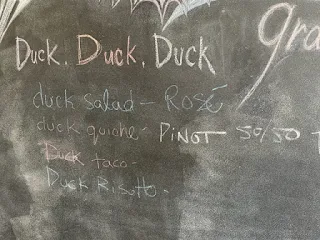 gra
Duck, Duck, Duck
duck salad - Rosé
duck quiche - PINOT 50/50
Duck taco -
Duck Risotto -